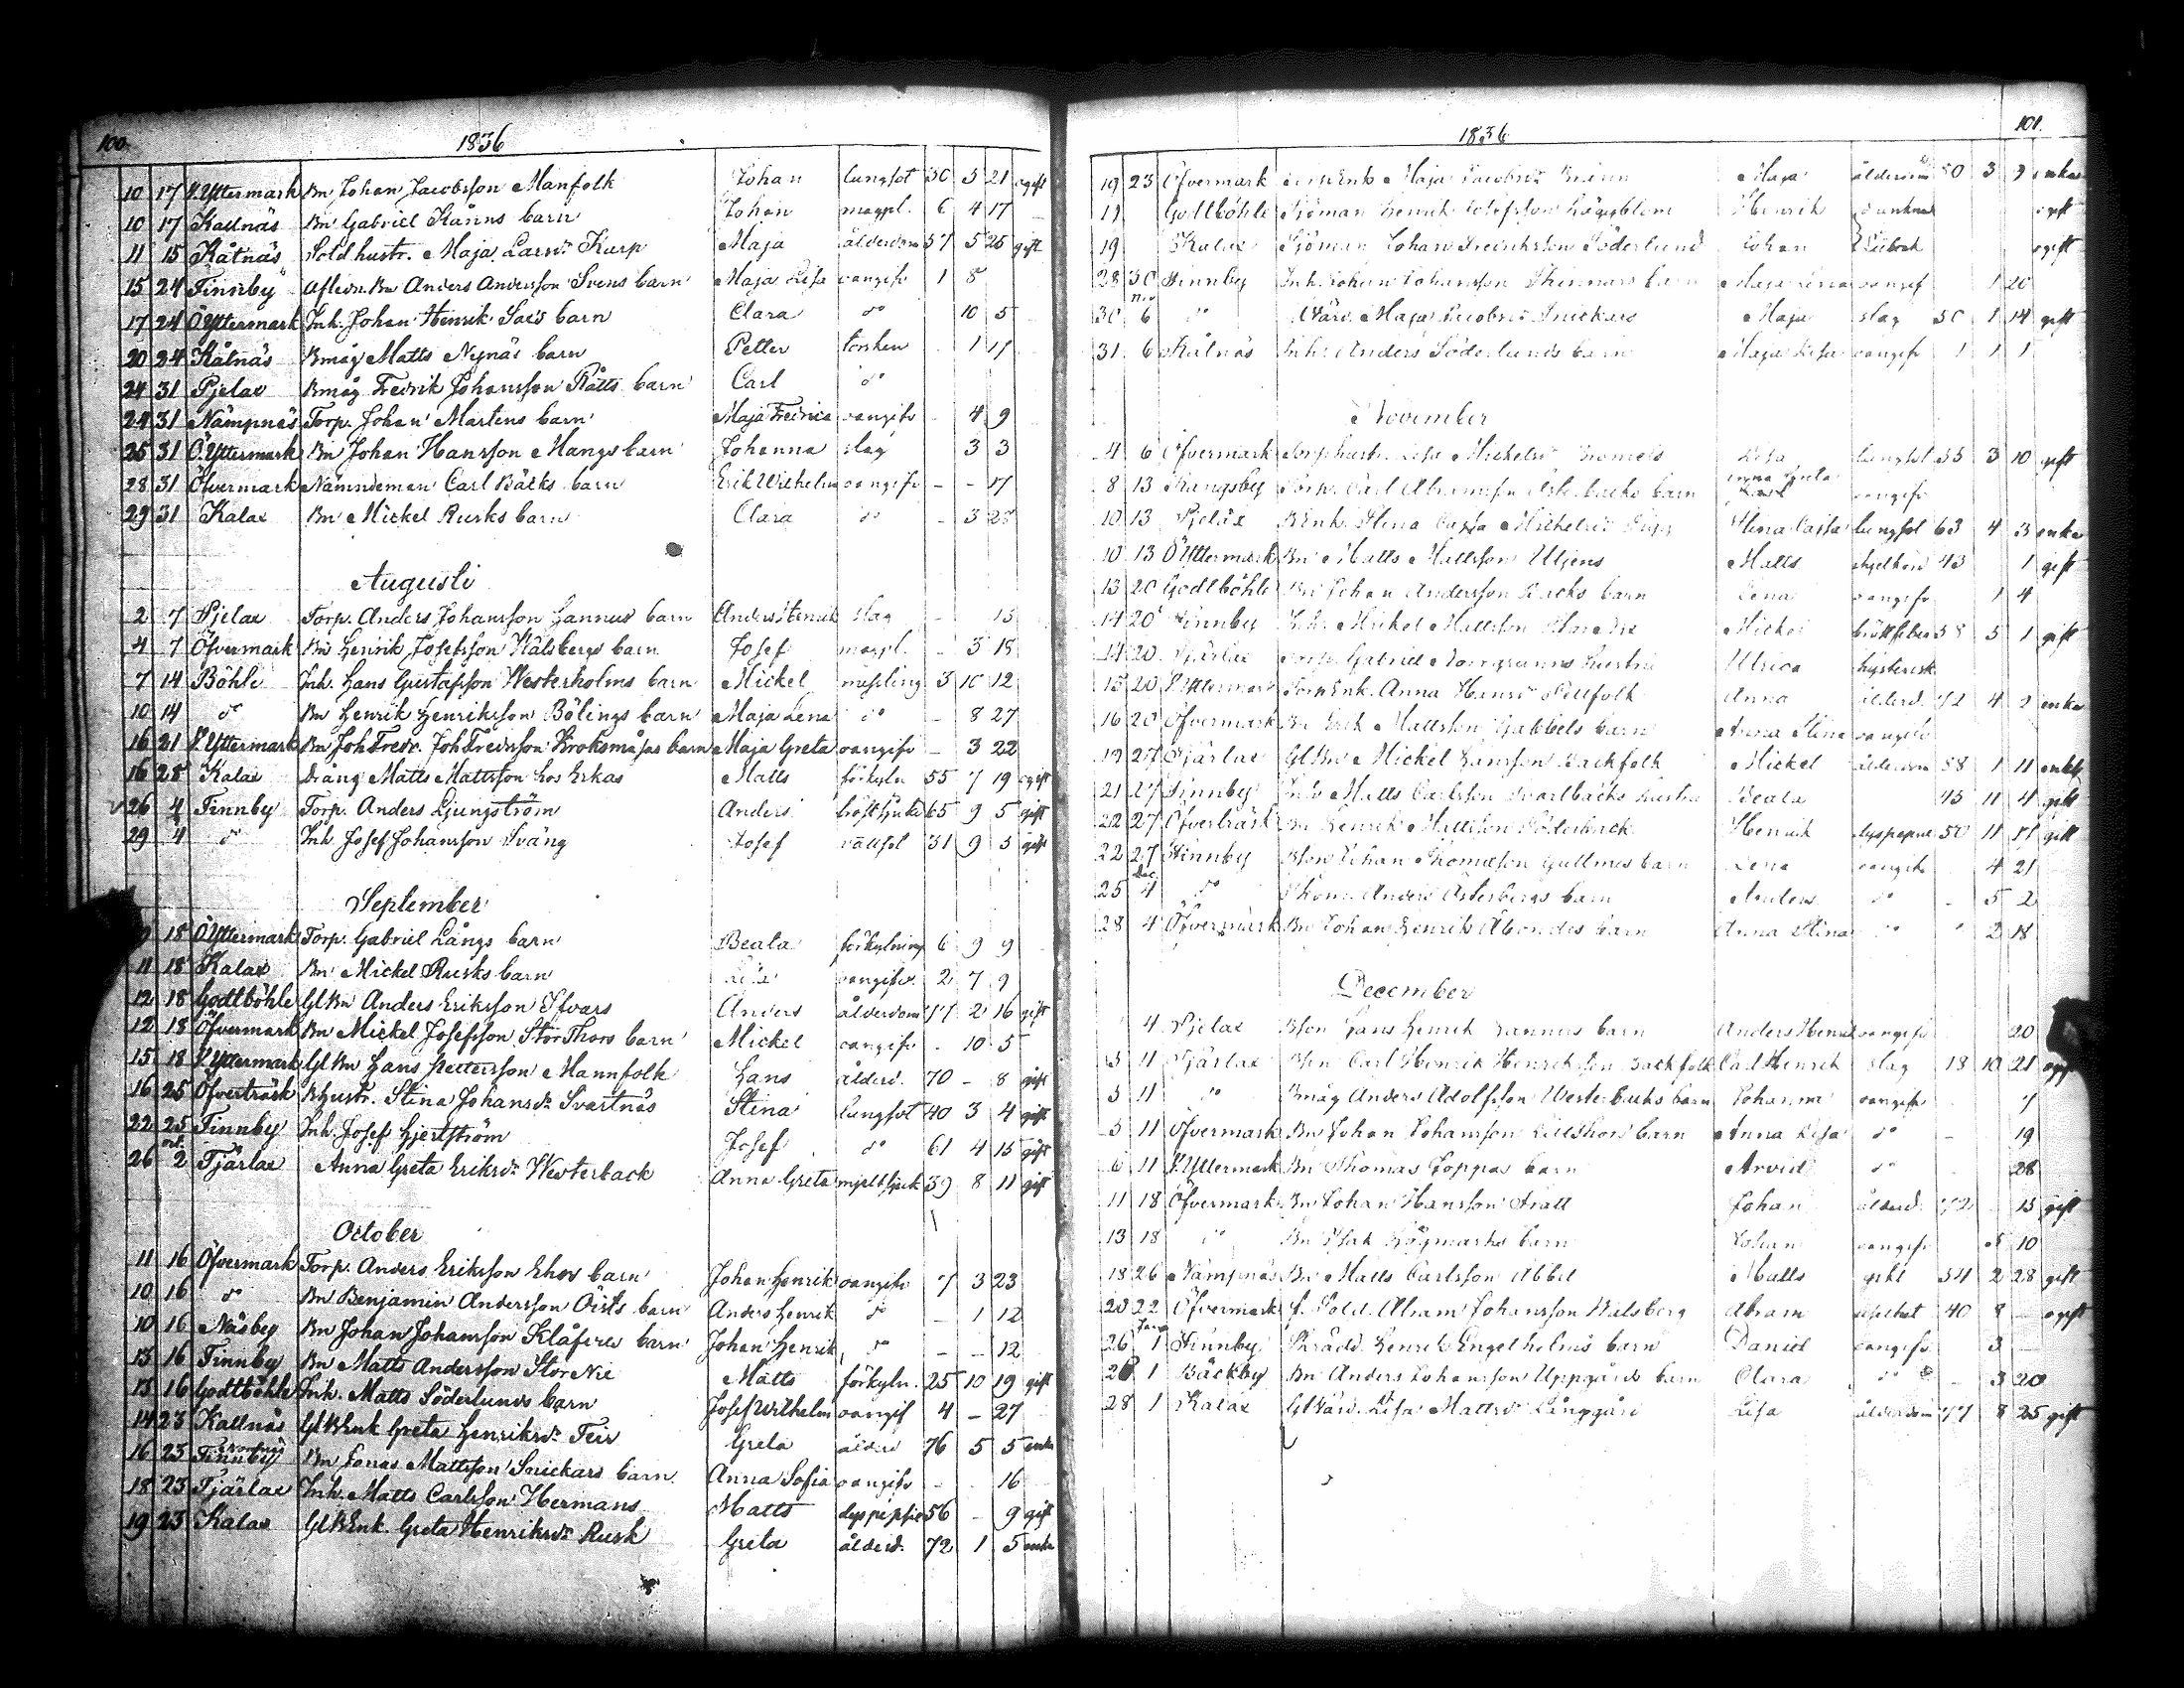 100.
1836
10 17 Y.Yttermark Bn Johan Jacobsson Manfolk Johan lungsot 30 3 21 ogift
10 17 Kallnäs Bn Gabriel Ränns barn Johan magpl. 6 4 17
11 15 Kåtnäs Sold hustr. Maja Larsdr Karp Maja ålderdom 57 5 25 gift
15 24 Finnby Aflidn. Bn Anders Andersson Svens barn Maja Lisa oangifv 1 8
17 24 Ö Yttermark Inh. Johan Henrik Sais barn Clara do 10 5
20 24 Kåtnäs Bmåg Matts Nynäs barn Petter torsken 1 17
24 31 Pjelax Bmåg Fredrik Johansson Rätts barn Carl do
24 31 Nämpnäs Torp. Johan Martens barn Maja Fredrica oangifv 4 9
25 31 Ö.Yttermark Bn Johan Hansson Mangs barn Johanna slag 3 3
28 31 Öfvermark Nämndeman Carl Bäcks barn Erik Wilhelm oangifv - - 17
29 31 Kalax Bn Mickel Rusks barn Clara do 3 28
Augusti
2 7 Pjelax Torp. Anders Johansson Hannus barn Anders Henrik slag 13
4 7 Öfvermark Bn Henrik Josefsson Wälsbergs barn Josef magpl. 3 18
7 14 Böhle Inh. Hans Gustafsson Westerholms barn Mickel mässling 3 10 12
10 14 do Bn Henrik Henriksson Bölings barn Maja Lena do - 8 27
16 21 Y.Yttermark Bn Joh Fredr. Joh Fredrsson Kroksmåsas barn Maja Greta oangifv - 3 22
16 28 Kalax dräng Matts Mattsson hos Erkas Matts förkyln 55 7 19 ogift
26 4 Finnby Torp. Anders Ljungström Anders bröstsjuka 65 9 5 gift
29 4 do Inh Josef Johansson Sväng Josef rättsot 31 9 5 gift
September
18 Ö Yttermark Torp. Gabriel Långs barn Beata förkylning 6 9 9
11 18 Kalax Bn Mickel Rusks barn Lisa oangifv. 2 7 9
12 18 Godtböhle Gl Bn Anders Eriksson Ifvars Anders ålderdom 77 2 16 gift
12 18 Öfvermark Bn Mickel Josefsson Stor Thors barn Mickel oangifv. - 10 5
15 18 Y.Yttermark Gl Bn Hans Pettersson Mannfolk Hans ålderd. 70 - 8 gift
16 25 Öfverträsk Bhustr. Stina Johansdr Svartnäs Stina lungsot 40 3 4 gift
22 25 Finnby Inh. Josef Hjertström Josef do 61 4 15 gift
26 oct. 2 Tjärlax Anna Greta Eriksdr Westerback Anna Greta mjeltsjuk 39 8 11 gift
October
11 16 Öfvermark Torp. Anders Eriksson Ehos barn Johan Henrik oangifv 7 3 23
10 16 do Bn Benjamin Andersson Öists barn Anders Henrik do - 1 12
10 16 Näsby Bn Johan Johansson Klåfves barn Johan Henrik do - - 12
13 16 Finnby Bn Matts Andersson Stor Nie Matts förkyln. 25 10 19 gift
13 16 Godtböhle Inh. Matts Söderlunds barn Josef Wilhelm oangif 4 - 27
14 23 Kallnäs Gl B Enk Greta Henriksdr Teir Greta ålderd 76 5 5 enka
16 23 Finnby Bn Jonas Mattsson Snickars barn Anna Sofia oangifv - 16
18 23 Tjärlax Inh. Matts Carlsson Hermans Matts dyspepsie 56 - 9 gift
19 23 Kalax Gl B Enk. Greta Henriksdr Rusk Greta ålderd. 72 1 5 enka
101.
1836
19 23 Öfvermark Maja Jacobsdr Maja ålderdom 50 3 9 enka
19 Godtböhle Sjöman Henrik Josefsson Häggblom Henrik drunknad ogift
19 Kalax Sjöman Johan Fredriksson Söderlund Johan ogift
28 30 Finnby Inh. Johan Johansson Skinnars barn Maja Lena oangif 1 20
30 Nov 6 do Maja Jacobsdr Snickars Maja slag 50 1 14 gift
31 6 Kåtnäs Inh. Anders Söderlunds barn Maja Lisa oangifv 1 1 1
November
4 6 Öfvermark Torphustr. Lisa Mickelsdr Lisa lungsot 35 3 10 gift
8 13 Rangsby Torp. Carl Abramsson barn oangifv
10 13 Pjelax B Enk. Stina Cajsa Mickelsdr Stina Cajsa lungsot 63 4 3 enka
10 13 Ö Yttermark Bn Matts Mattsson Uljens Matts 43 1 gift
13 20 Godtböhle Bn Johan Andersson Backs barn Lena oangifv 1 4
14 20 Finnby Inh. Mickel Mattsson Stor Nie Mickel 58 5 1 gift
14 20 Tjärlax Gabriel Norrgranns hustru Ulrica hysterisk
15 20 Y.Yttermark Torp Enk. Anna Hansdr Pellfolk Anna ålderd. 72 4 2 enka
16 20 Öfvermark Bn Erik Mattsson Gabbels barn Anna Stina oangifv
19 27 Tjärlax Gl Bn Mickel Hansson Backfolk Mickel ålderdom 58 1 11 enkl.
21 27 Finnby Inh Matts Carlsson Svartbacks hustru Beata 45 11 4 gift
22 27 Öfverträsk Bn Henrik Mattsson Söderback Henrik dyspepsie 50 11 11 gift
22 27 Finnby Bson Johan Thomasson Gullmes barn Lena oangifv 4 21
25 Dec 4 do Skom. Anders Österbergs barn Anders do - 5 2
28 4 Öfvermark Bn Johan Henrik Åbondes barn Anna Stina do 2 18
December
4 Pjelax Bson Hans Henrik Hannus barn Anders Henrik oangifv 20
3 11 Tjärlax Bson Carl Henrik Henriksson Backfolk Carl Henrik slag 18 10 21 ogift
5 11 do Bmåg Anders Adolfsson Westerbacks barn Johanna oangifv 7
5 11 Öfvermark Bn Johan Johansson Lillthors barn Anna Lisa do - 19
6 11 Y.Yttermark Bn Thomas Joppas barn Arvid do 28
11 18 Öfvermark Bn Johan Hansson Johan ålderd. 72 13 gift
13 18 do Bn Isak Högmarks barn Johan oangifv 8 10
18 26 Nämpnäs Bn Matts Carlsson Abbel Matts gikt 54 2 28 gift
20 22 Öfvermark f. Sold. Abram Johansson Wälsberg Abram 40 8 - ogift
26 Janua 1 Finnby Skrädd. Henrik Engelholms barn Daniel oangifv 3
28 1 Bäckby Bn Anders Johansson Uppgårds barn Clara do - 3 20
28 1 Kalax Lisa Mattsdr Långgård Lisa ålderdom 77 8 25 gift